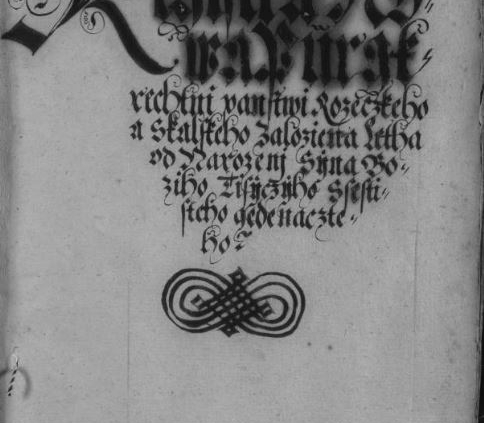 wa Purk
rechtni panstwi Rozeczkeho
a Skalskeho Zaloziena Letha
od Narozenj Syna Bo-
ziho Tisyczyho Ssesti-
steho gedenaczte-
ho